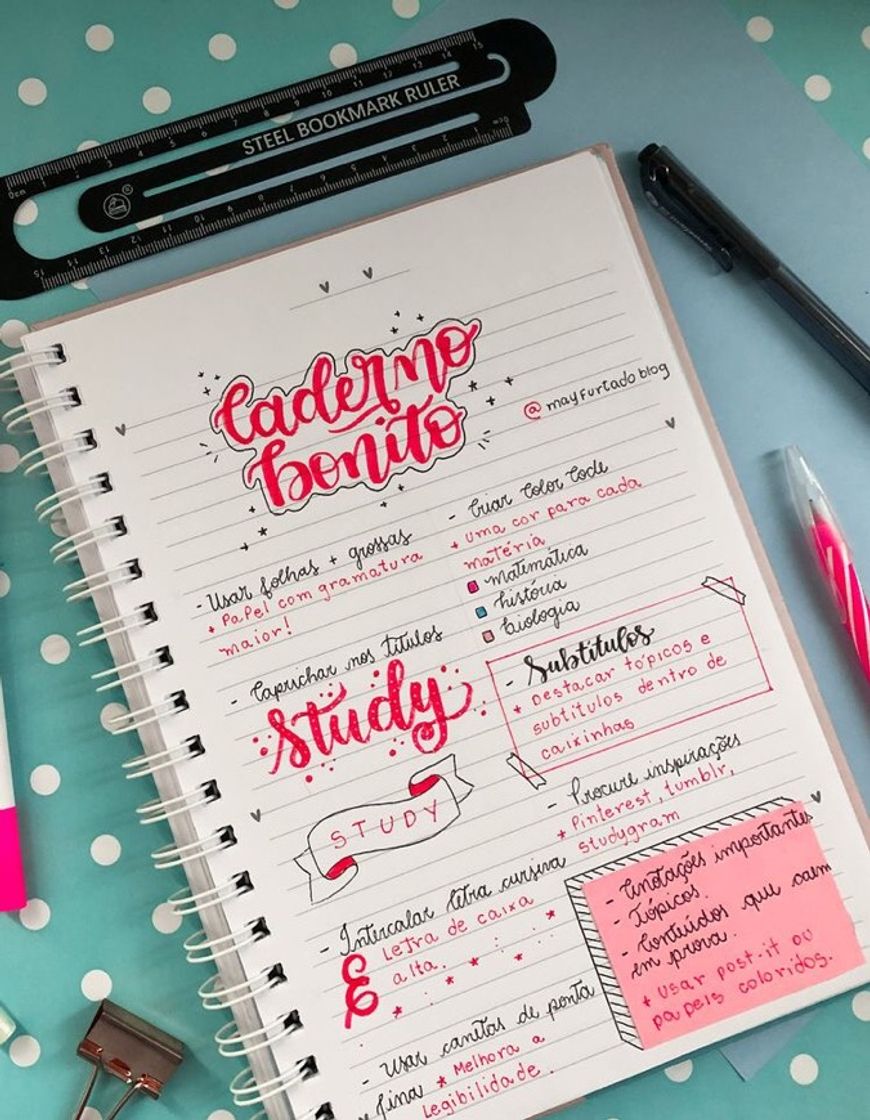 STEEL BOOKMARK RULER
caderno
bonito
@mayfurtado blog
- Usar folhas + grossas
+ Papel com gramatura
maior!
- Caprichar nos títulos
Study
STUDY
- Intercalar letra cursiva
E Letra de caixa
alta.
- Usar canitas de ponta
fina * Melhora a
Legibilidade.
- Criar Color Code
+ uma cor para cada
matéria
matemática
história
biologia
- Subtítulos
* Destacar tópicos e
subtítulos dentro de
caixinhas
- Procure inspirações
* Pinterest, tumblr,
studygram
- Anotações importantes
- Tópicos.
- Conteúdos que caem
em prova.
+ usar post-it ou
papeis coloridos.